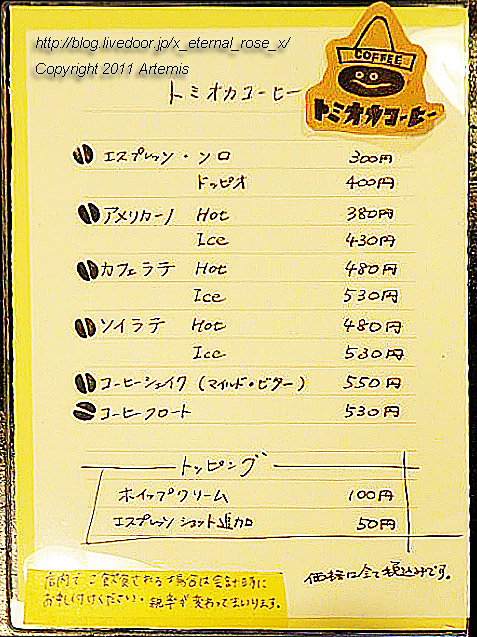 http://blog.livedoor.jp/x_eternal_rose_x/
Copyright 2011 Artemis
COFFEE
トミオカコーヒー
トミオカコーヒー
エスプレッソ・ソロ 300円
ドッピオ 400円
アメリカーノ Hot 380円
Ice 430円
カフェラテ Hot 480円
Ice 530円
ソイラテ Hot 480円
Ice 530円
コーヒーシェイク (マイルド・ビター) 550円
コーヒーフロート 530円
トッピング
ホイップクリーム 100円
エスプレッソショット追加 50円
店内でご飲食される場合は会計時に
お申し付けください。税率が変わってまいります。
価格は全て税込みです。